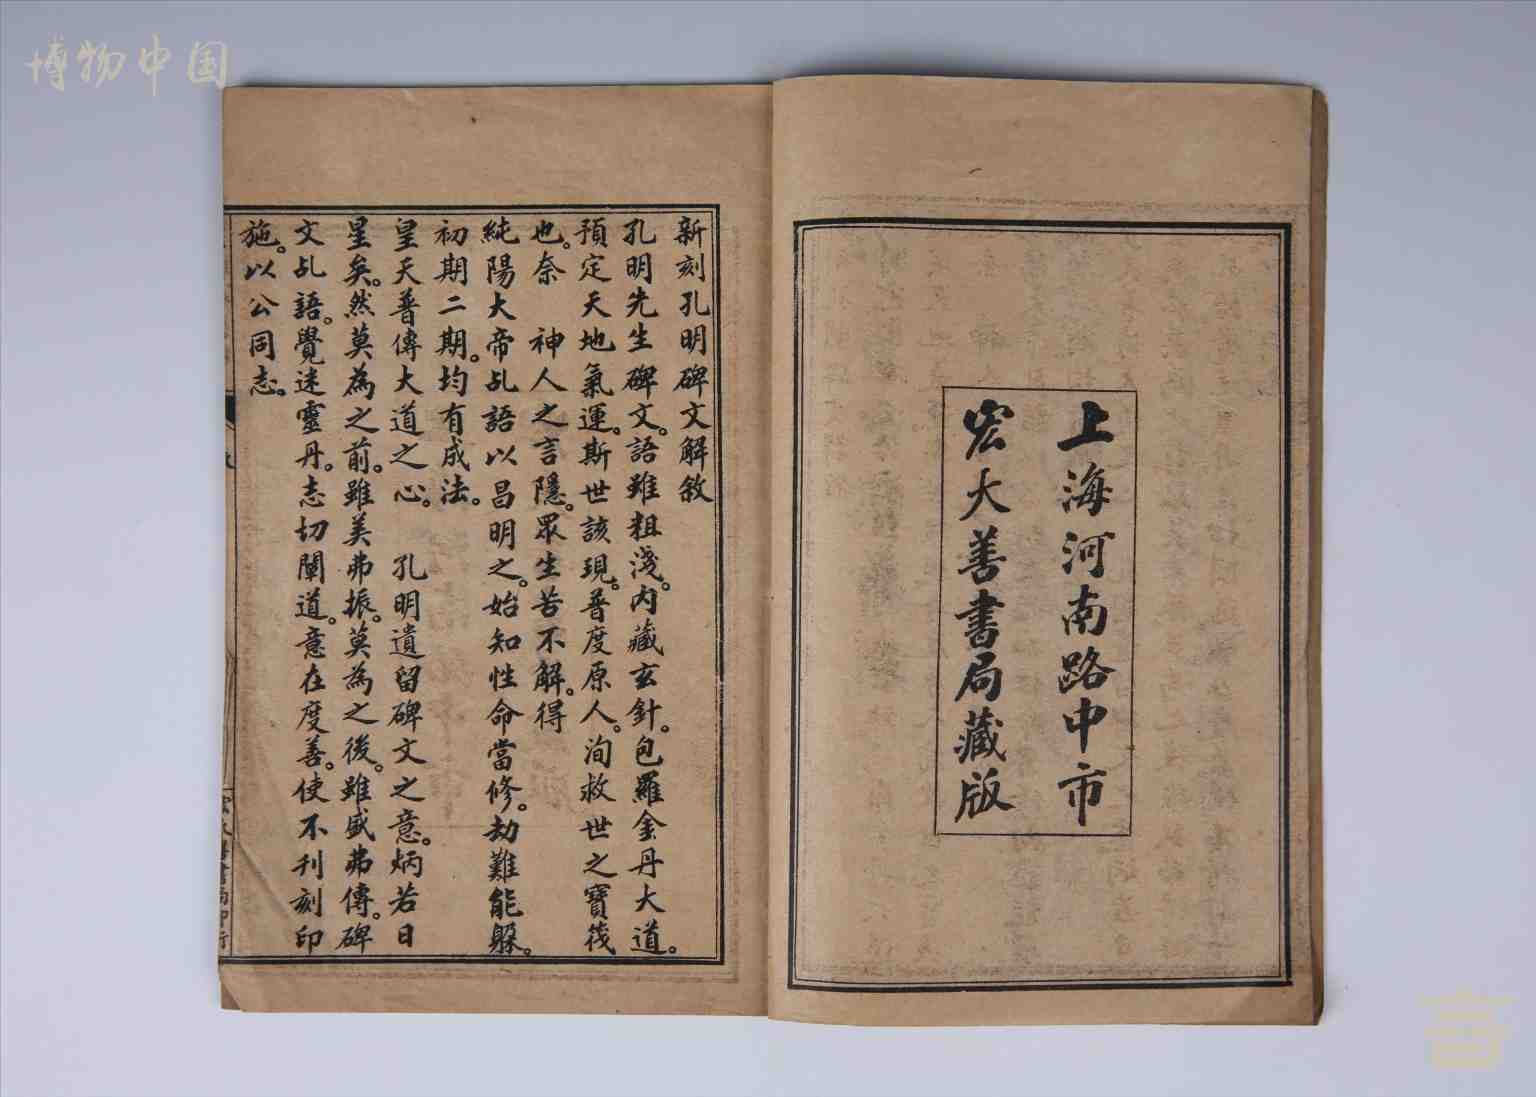 博物中国
上海河南路中市
宏大善書局藏版
新刻孔明碑文解敘
孔明先生碑文。語雖粗淺。內藏玄針。包羅金丹大道。
預定天地氣運。斯世該現。普度原人。洵救世之寶筏
也。奈　神人之言隱。眾生苦不解。得
純陽大帝乩語以昌明之。始知性命當修。劫難能躲。
初期二期。均有成法。
皇天普傳大道之心。　孔明遺留碑文之意。炳若日
星矣。然莫為之前。雖美弗振。莫為之後。雖盛弗傳。碑
文乩語。覺迷靈丹。志切闡道。意在度善。使不刊刻印
施。以公同志。